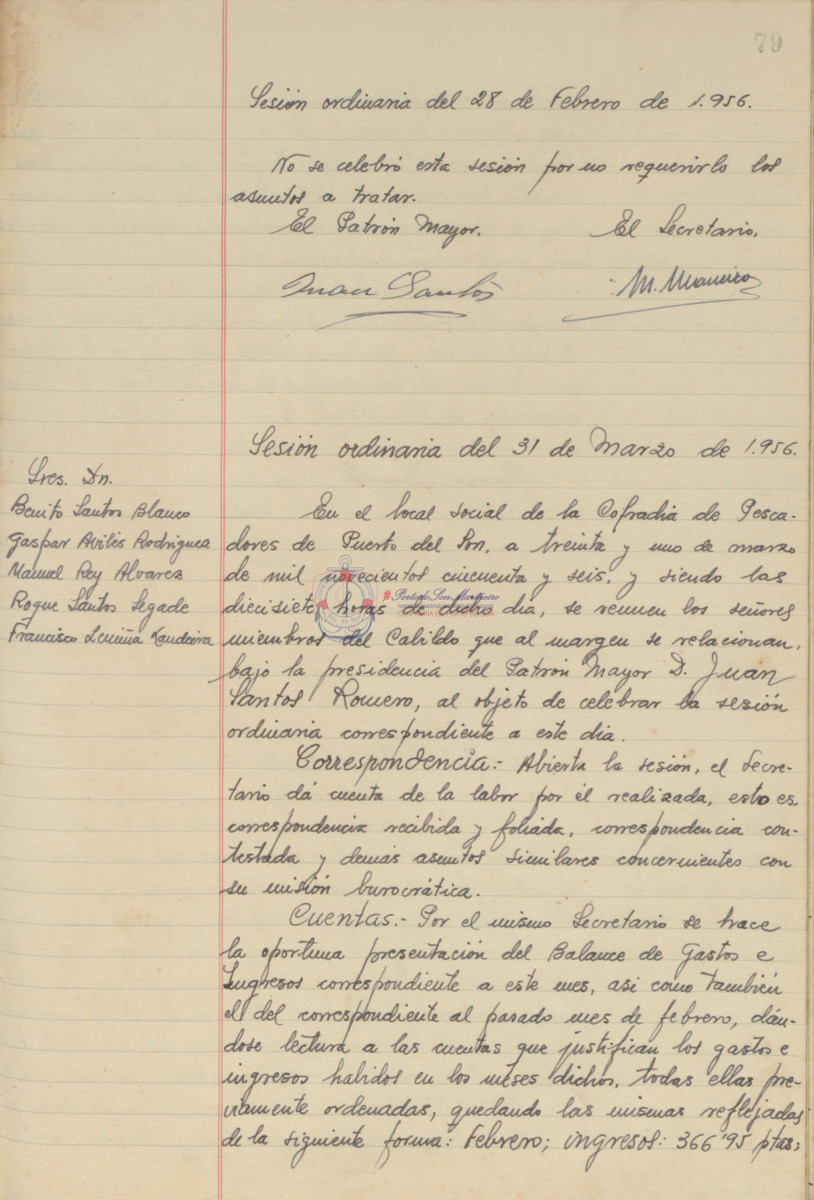 79
Sesión ordinaria del 28 de Febrero de 1.956.
No se celebró esta sesión por no requerirlo los
asuntos a tratar.
El Patrón Mayor. El Secretario,
Juan Santos M. Maneiro
Sesión ordinaria del 31 de Marzo de 1.956.
Sres. Dn.
Benito Santos Blanco
Gaspar Avilés Rodriguez
Manuel Rey Alvarez
Roque Santos Segade
Francisco
En el local social de la Cofradia de Pesca-
dores de Puerto del Son, a treinta y uno de marzo
de mil novecientos cincuenta y seis, y siendo las
diecisiete horas de dicho dia, se reunen los señores
miembros del Cabildo que al margen se relacionan,
bajo la presidencia del Patrón Mayor D. Juan
Santos Romero, al objeto de celebrar la sesión
ordinaria correspondiente a este dia.
Correspondencia.- Abierta la sesión, el Secre-
tario dá cuenta de la labor por él realizada, esto es,
correspondencia recibida y foliada, correspondencia con-
testada y demás asuntos similares concernientes con
su misión burocrática.
Cuentas.- Por el mismo Secretario se hace
la oportuna presentación del Balance de Gastos e
Ingresos correspondiente a este mes, asi como también
el del correspondiente al pasado mes de febrero, dán-
dose lectura a las cuentas que justifican los gastos e
ingresos habidos en los meses dichos, todas ellas pre-
viamente ordenadas, quedando las mismas reflejadas
de la siguiente forma: Febrero; ingresos: 366'95 ptas;